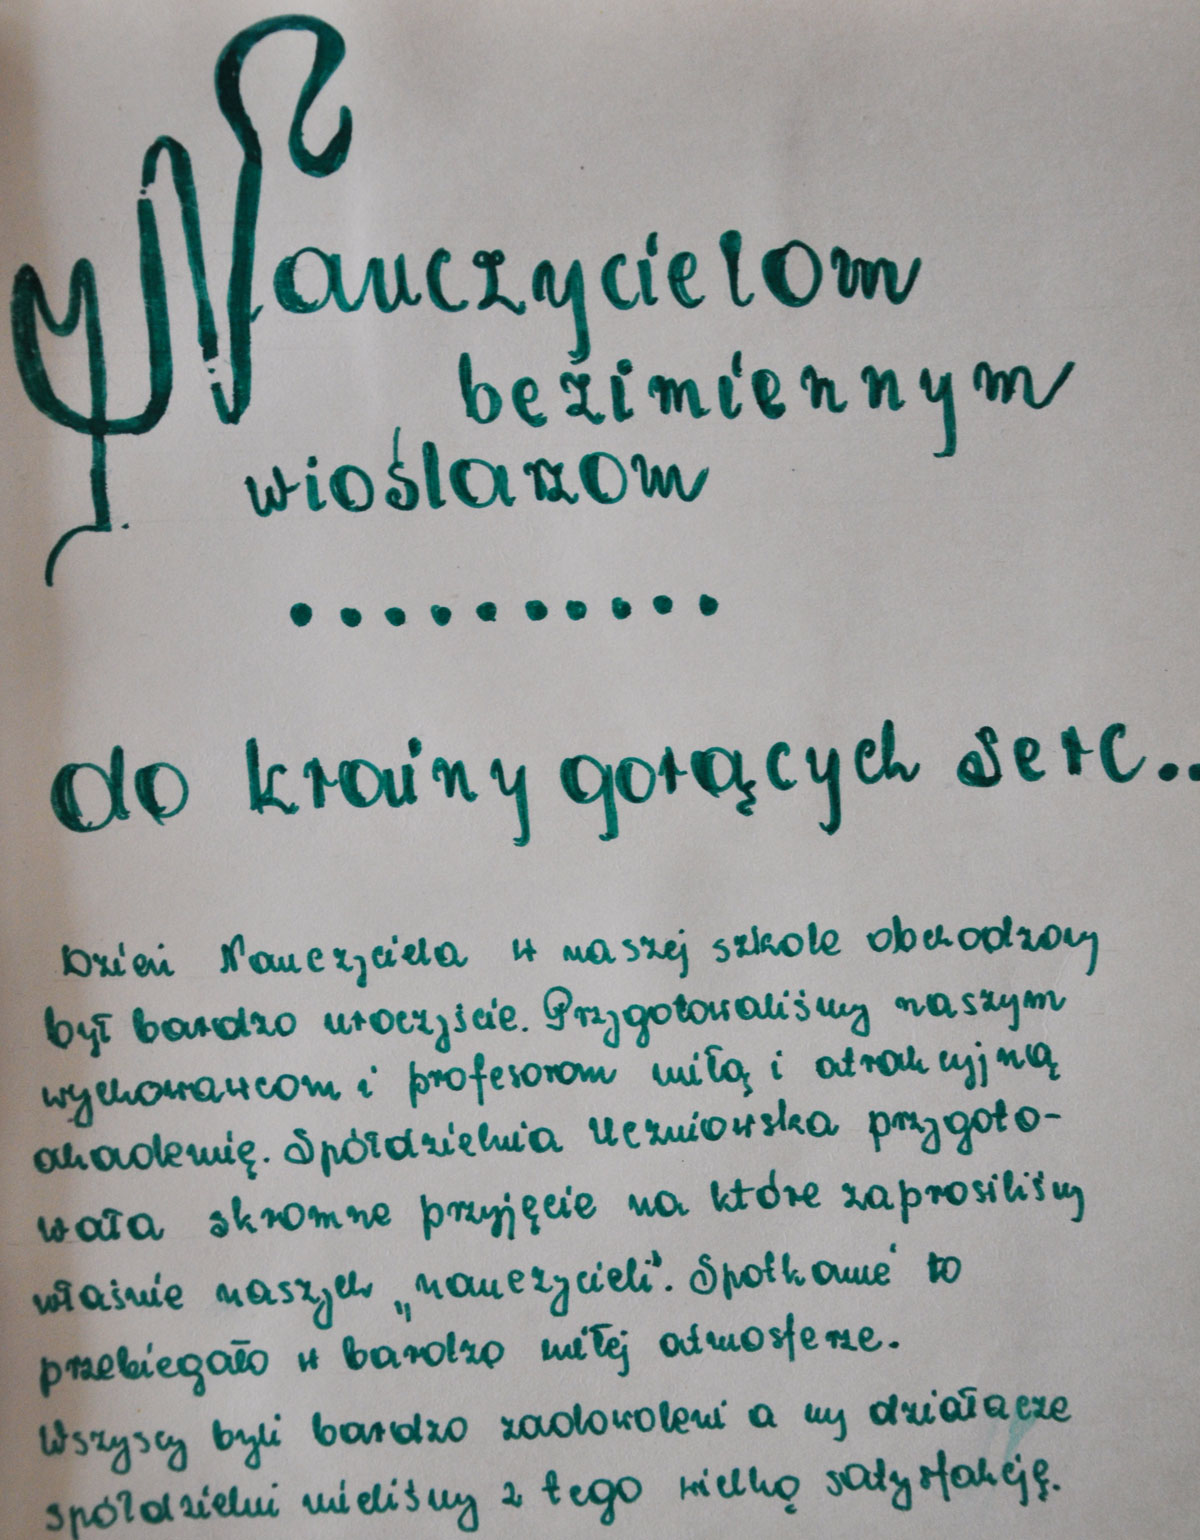 Nauczycielom
bezimiennym
wioślarzom
..........
do krainy gorących serc..
Dzień Nauczyciela w naszej szkole obchodzony
był bardzo uroczyście. Przygotowaliśmy naszym
wychowawcom i profesorom miłą i atrakcyjną
akademię. Spółdzielnia Uczniowska przygoto-
wała skromne przyjęcie na które zaprosiliśmy
właśnie naszych „nauczycieli”. Spotkanie to
przebiegało w bardzo miłej atmosferze.
Wszyscy byli bardzo zadowoleni a my działacze
spółdzielni mieliśmy z tego wielką satysfakcję.